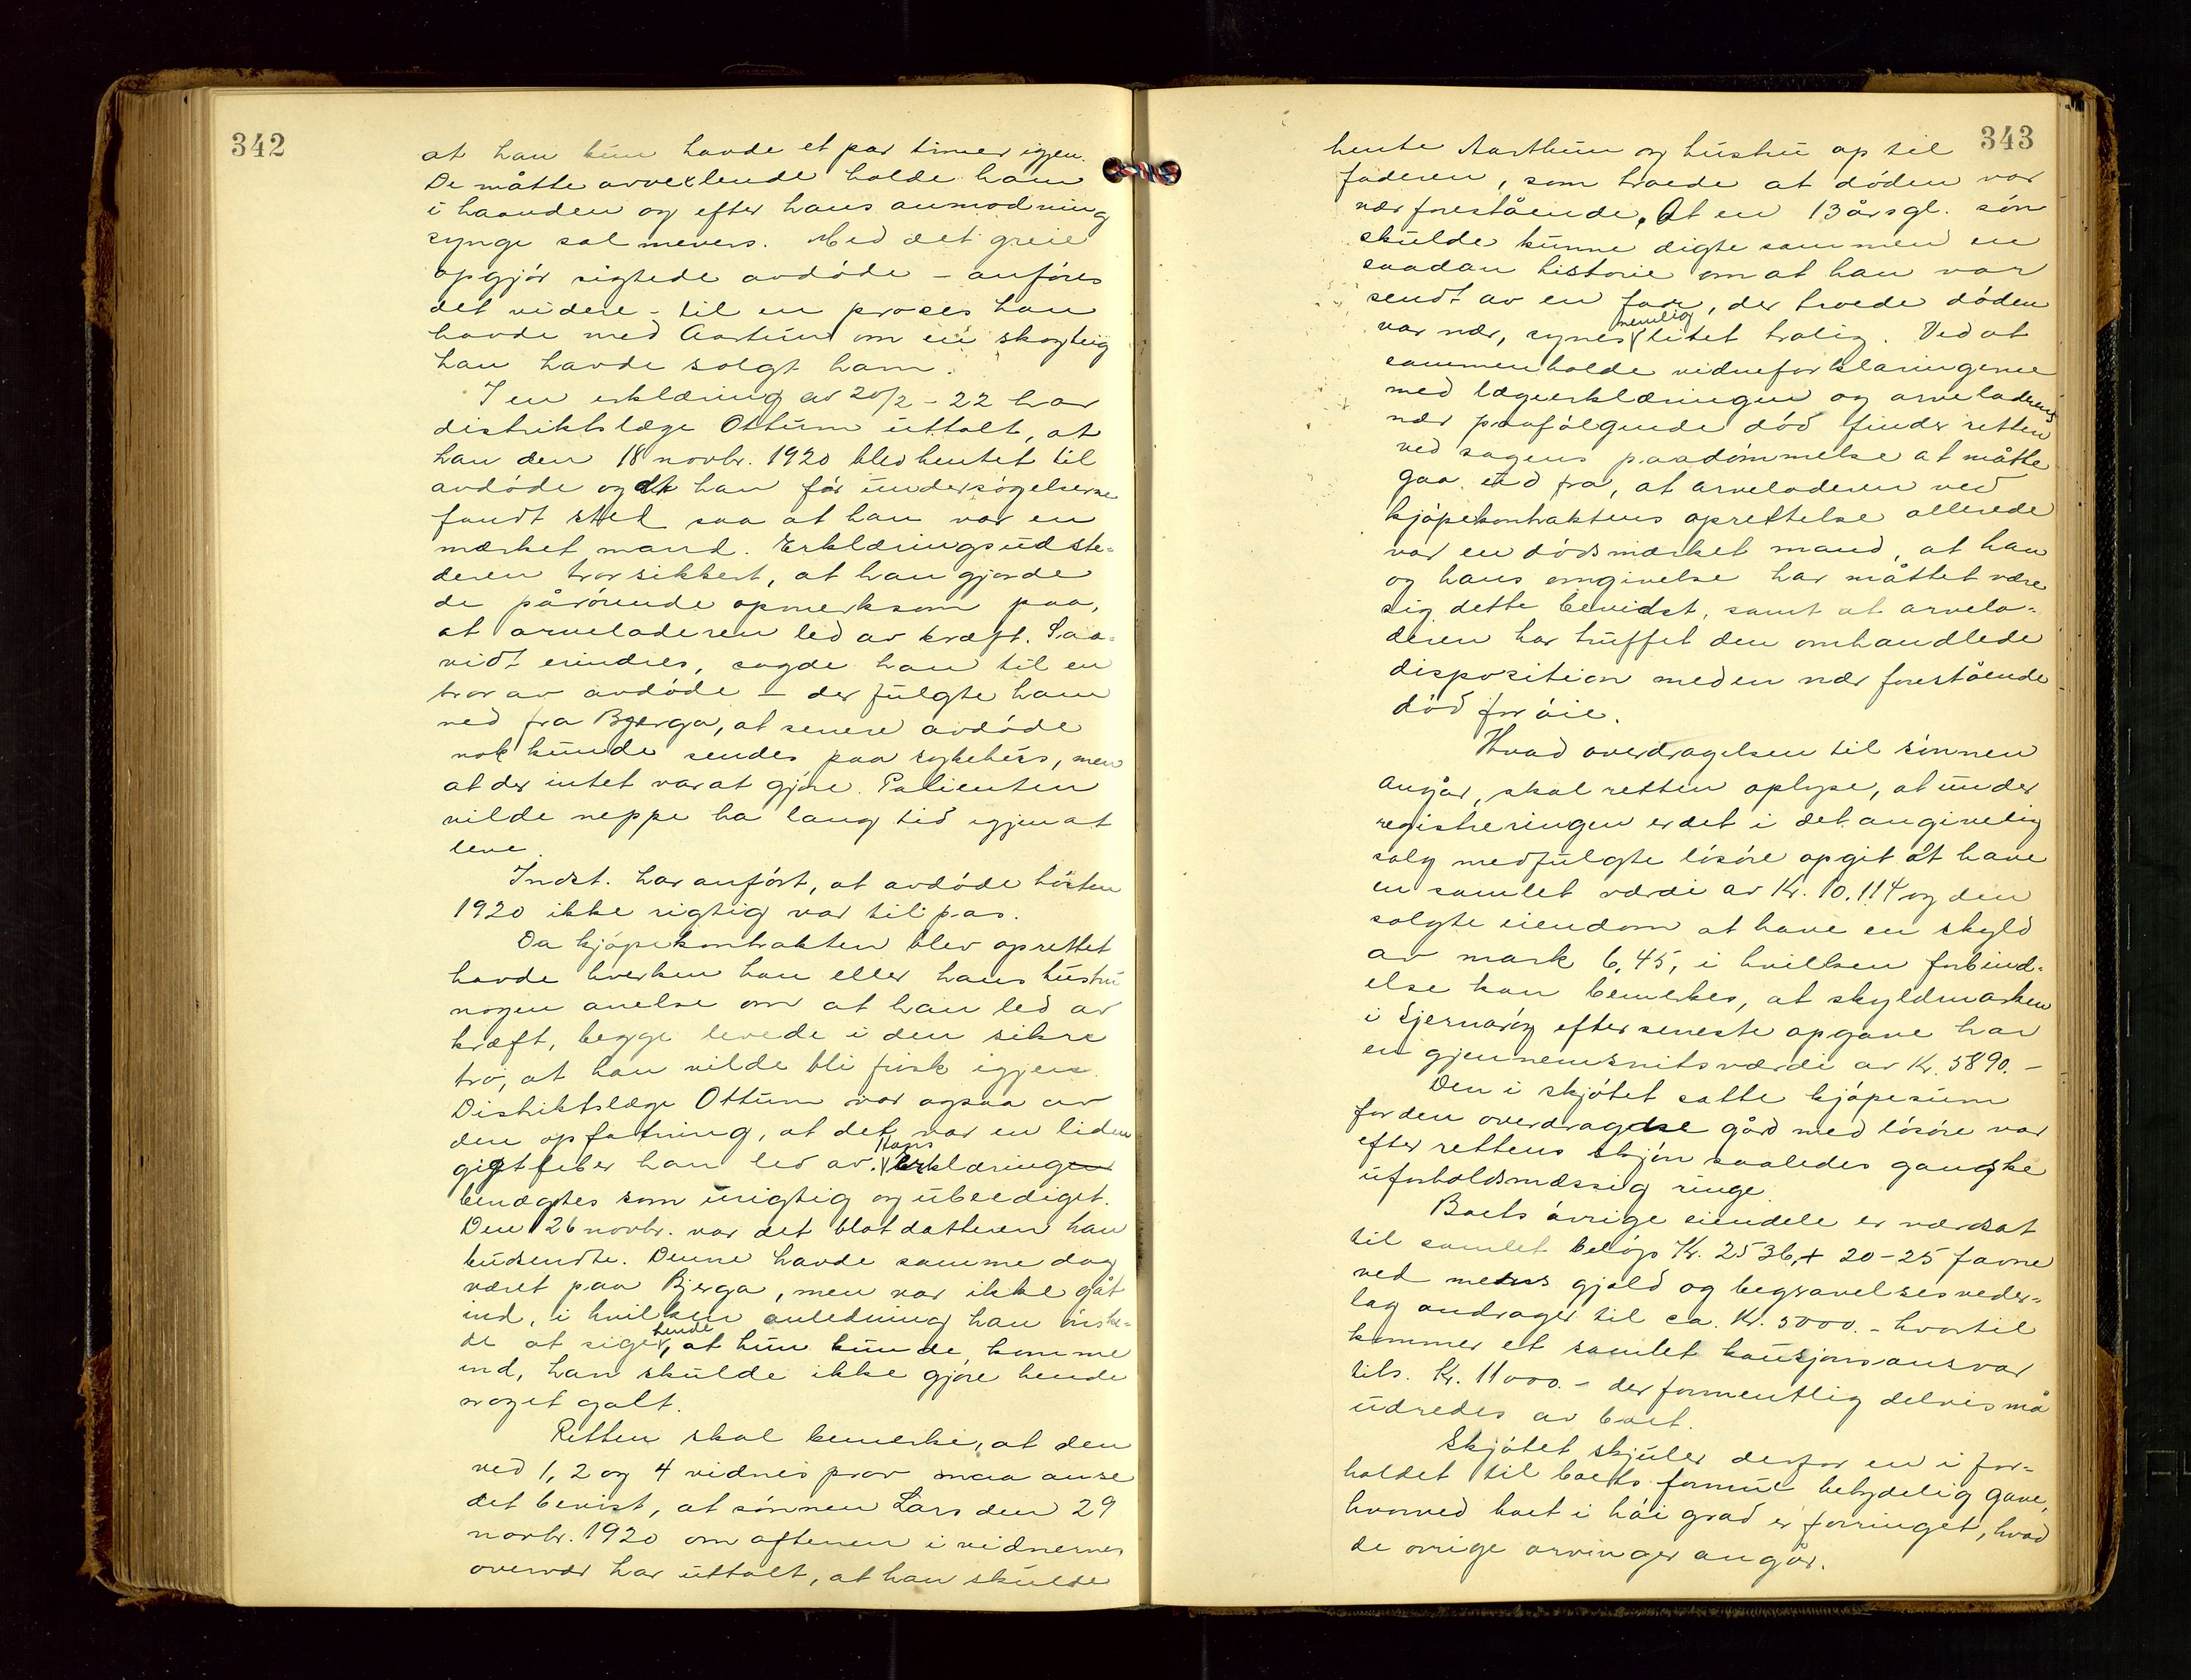 342
at han kun havde et par timer igjen.
De måtte avvexlende holde ham
i haanden og efter hans anmodning
synge salmevers. Med det greie
opgjør sigtede avdøde – anføres
det videre – til en proces han
havde med Aartun om en skogteig
han havde solgt ham.
I en erklæring av 20/2 – 22 har
distriktslæge Ottum uttalt, at
han den 18 novbr. 1920 blev hentet til
avdøde og at han før undersøgelserne
fandt straks saa at han var en
mærket mand. Erklæringsudste-
deren tror sikkert, at han gjorde
de pårørende opmerksom paa,
at arveladeren led av kræft. Saa-
vidt erindres, sagde han til en
bror av avdøde – der fulgte ham
ned fra Bjerga, at senere avdøde
nok kunde sendes paa sykehus, men
at der intet var at gjøre. Patienten
vilde neppe ha lang tid igjen at
leve.
Indst. har anført, at avdøde høsten
1920 ikke rigtig var tilpas.
Da kjøpekontrakten blev oprettet
havde hverken han eller hans hustru
nogen anelse om at han led av
kræft, begge levede i den sikre
tro, at han vilde bli frisk igjen.
Distriktslæge Ottum var ogsaa av
den opfatning, at det var en liden
gigtfeber han led av. Hans erklæringer
benægtes som urigtig og ubeediget.
Den 26 novbr. var det blot datteren han
budsendte. Denne havde samme dag
været paa Bjerga, men var ikke gåt
ind, i hvilken anledning han ønske-
de at sige hende, at hun kunde komme
ind, han skulde ikke gjøre hende
noget galt.
Retten skal bemerke, at den
ved 1, 2 og 4 vidnes prov maa anse
det bevist, at sønnen Lars den 29
novbr. 1920 om aftenen i vidnernes
overvær har uttalt, at han skulde
343
hente Aarthun og hustru op til
faderen, som troede at døden var
nær forestående. At en 13 årsgl. søn
skulde kunne digte sammen en
saadan historie om at han var
sendt av en far, der troede døden
var nær, synes nemlig litet trolig. Ved at
sammenholde vidneforklaringerne
med lægeerklæringen og arveladerens
nær paafølgende død finder retten
ved sagens paadømmelse at måtte
gaa ud fra, at arveladeren ved
kjøpekontraktens oprettelse allerede
var en dødsmærket mand, at han
og hans omgivelse har måttet være
sig dette bevidst, samt at arvela-
deren har truffet den omhandlede
disposition med en nær forestående
død for øie.
Hvad overdragelsen til sønnen
angår, skal retten oplyse, at under
registreringen er det i det angivelig
salg medfulgte løsøre opgit at have
en samlet værdi av Kr. 10.114 og den
solgte eiendom at have en skyld
av mark 6,45, i hvilken forbind-
else kan bemerkes, at skyldmarken
i Sjernarøy efter seneste opgave har
en gjennemsnitsværdi av Kr. 5890. –
Den i skjøtet satte kjøpesum
for den overdragne gård med løsøre var
efter rettens skjøn saaledes ganske
uforholdsmæssig ringe.
Boets øvrige eiendele er værdsat
til samlet beløp Kr. 2536, + 20 – 25 favne
ved mens gjæld og begravelsesveder-
lag andrager til ca. Kr. 5000. – hvortil
kommer et samlet kausjonsansvar
tils. Kr. 11000. – der formentlig delvis må
udredes av boet.
Skjøtet skjuler derfor en i for-
holdet til boets formue betydelig gave,
hvorved boet i høi grad er forringet, hvad
de øvrige arvinger angår.